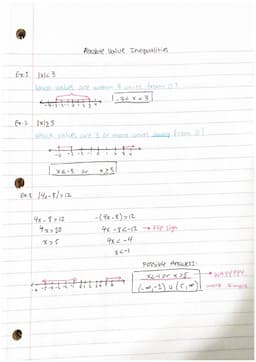 Absolute Value Inequalities
Ex.1 |x|<3
Which values are within 3 units from 0?
-3<x<3
Ex.2 |x|≥3
which values are 3 or more units from 0?
x≤-3 or x≥3
Ex.3 |4x-8|>12
4x-8>12 -(4x-8)>12
4x>20 4x-8<-12 → Flip Sign
x>5 4x<-4
x<-1
Possible Answers:
x<-1 or x>5
(-∞,-1) U (5,∞)